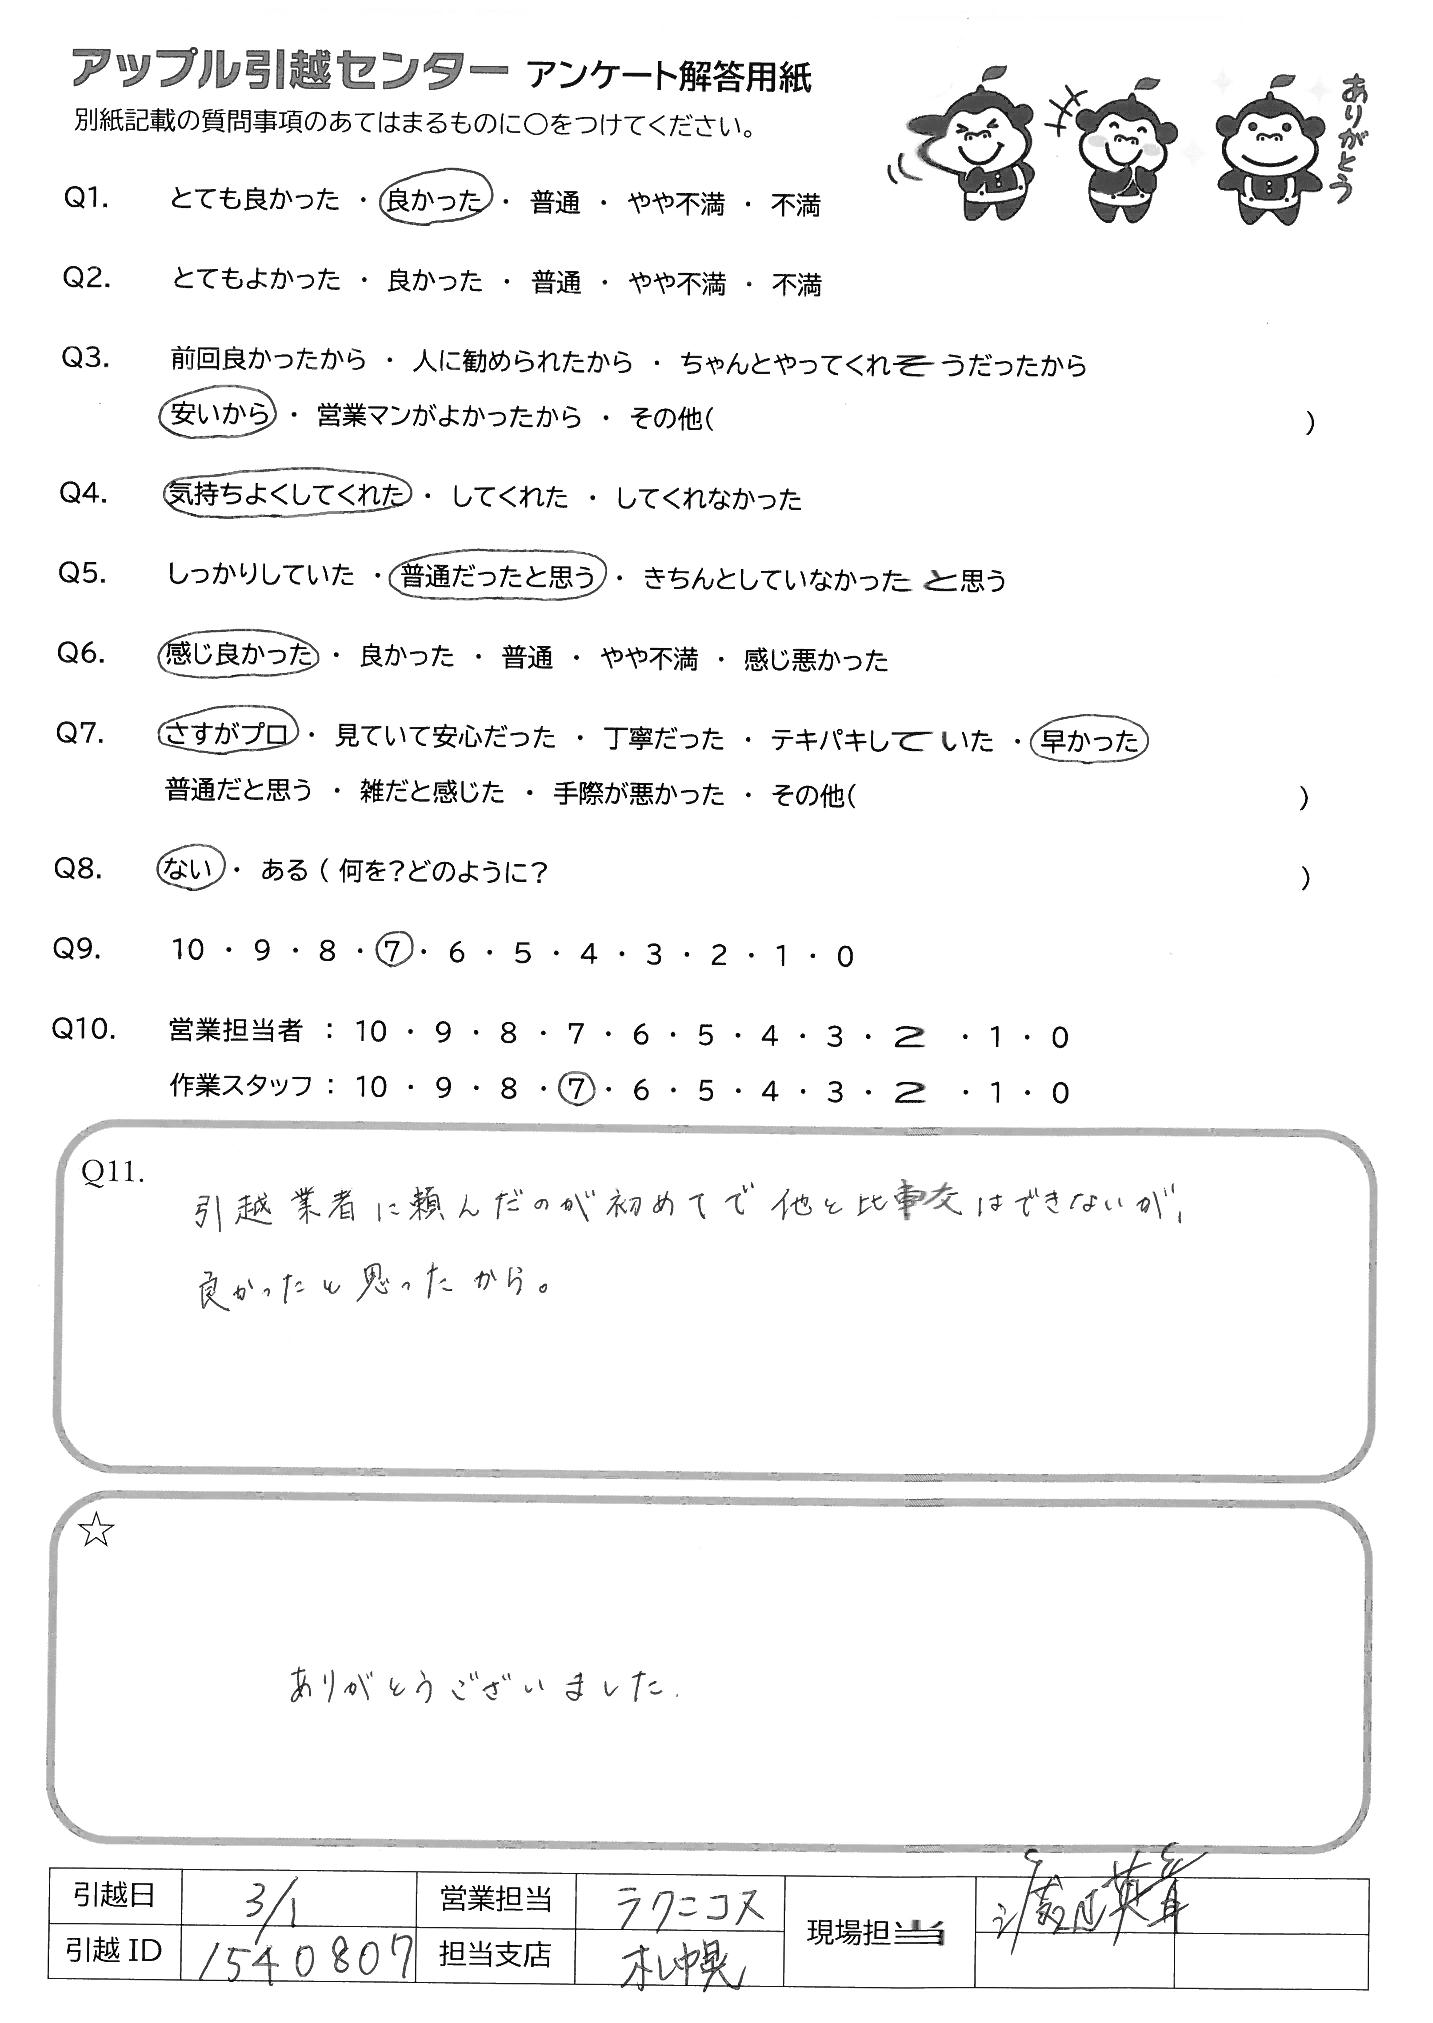 アップル引越センター アンケート解答用紙
別紙記載の質問事項のあてはまるものに○をつけてください。
ありがとう
Q1. とても良かった ・ 良かった ・ 普通 ・ やや不満 ・ 不満
Q2. とてもよかった ・ 良かった ・ 普通 ・ やや不満 ・ 不満
Q3. 前回良かったから ・ 人に勧められたから ・ ちゃんとやってくれそうだったから
安いから ・ 営業マンがよかったから ・ その他( )
Q4. 気持ちよくしてくれた ・ してくれた ・ してくれなかった
Q5. しっかりしていた ・ 普通だったと思う ・ きちんとしていなかったと思う
Q6. 感じ良かった ・ 良かった ・ 普通 ・ やや不満 ・ 感じ悪かった
Q7. さすがプロ ・ 見ていて安心だった ・ 丁寧だった ・ テキパキしていた ・ 早かった
普通だと思う ・ 雑だと感じた ・ 手際が悪かった ・ その他( )
Q8. ない ・ ある ( 何を?どのように? )
Q9. 10 ・ 9 ・ 8 ・ 7 ・ 6 ・ 5 ・ 4 ・ 3 ・ 2 ・ 1 ・ 0
Q10. 営業担当者 : 10 ・ 9 ・ 8 ・ 7 ・ 6 ・ 5 ・ 4 ・ 3 ・ 2 ・ 1 ・ 0
作業スタッフ : 10 ・ 9 ・ 8 ・ 7 ・ 6 ・ 5 ・ 4 ・ 3 ・ 2 ・ 1 ・ 0
Q11.
引越業者に頼んだのが初めてで他と比較はできないが、
良かったと思ったから。
☆
ありがとうございました.
引越日 3/1 営業担当 ラクニコス 現場担当
引越ID 1540807 担当支店 札幌